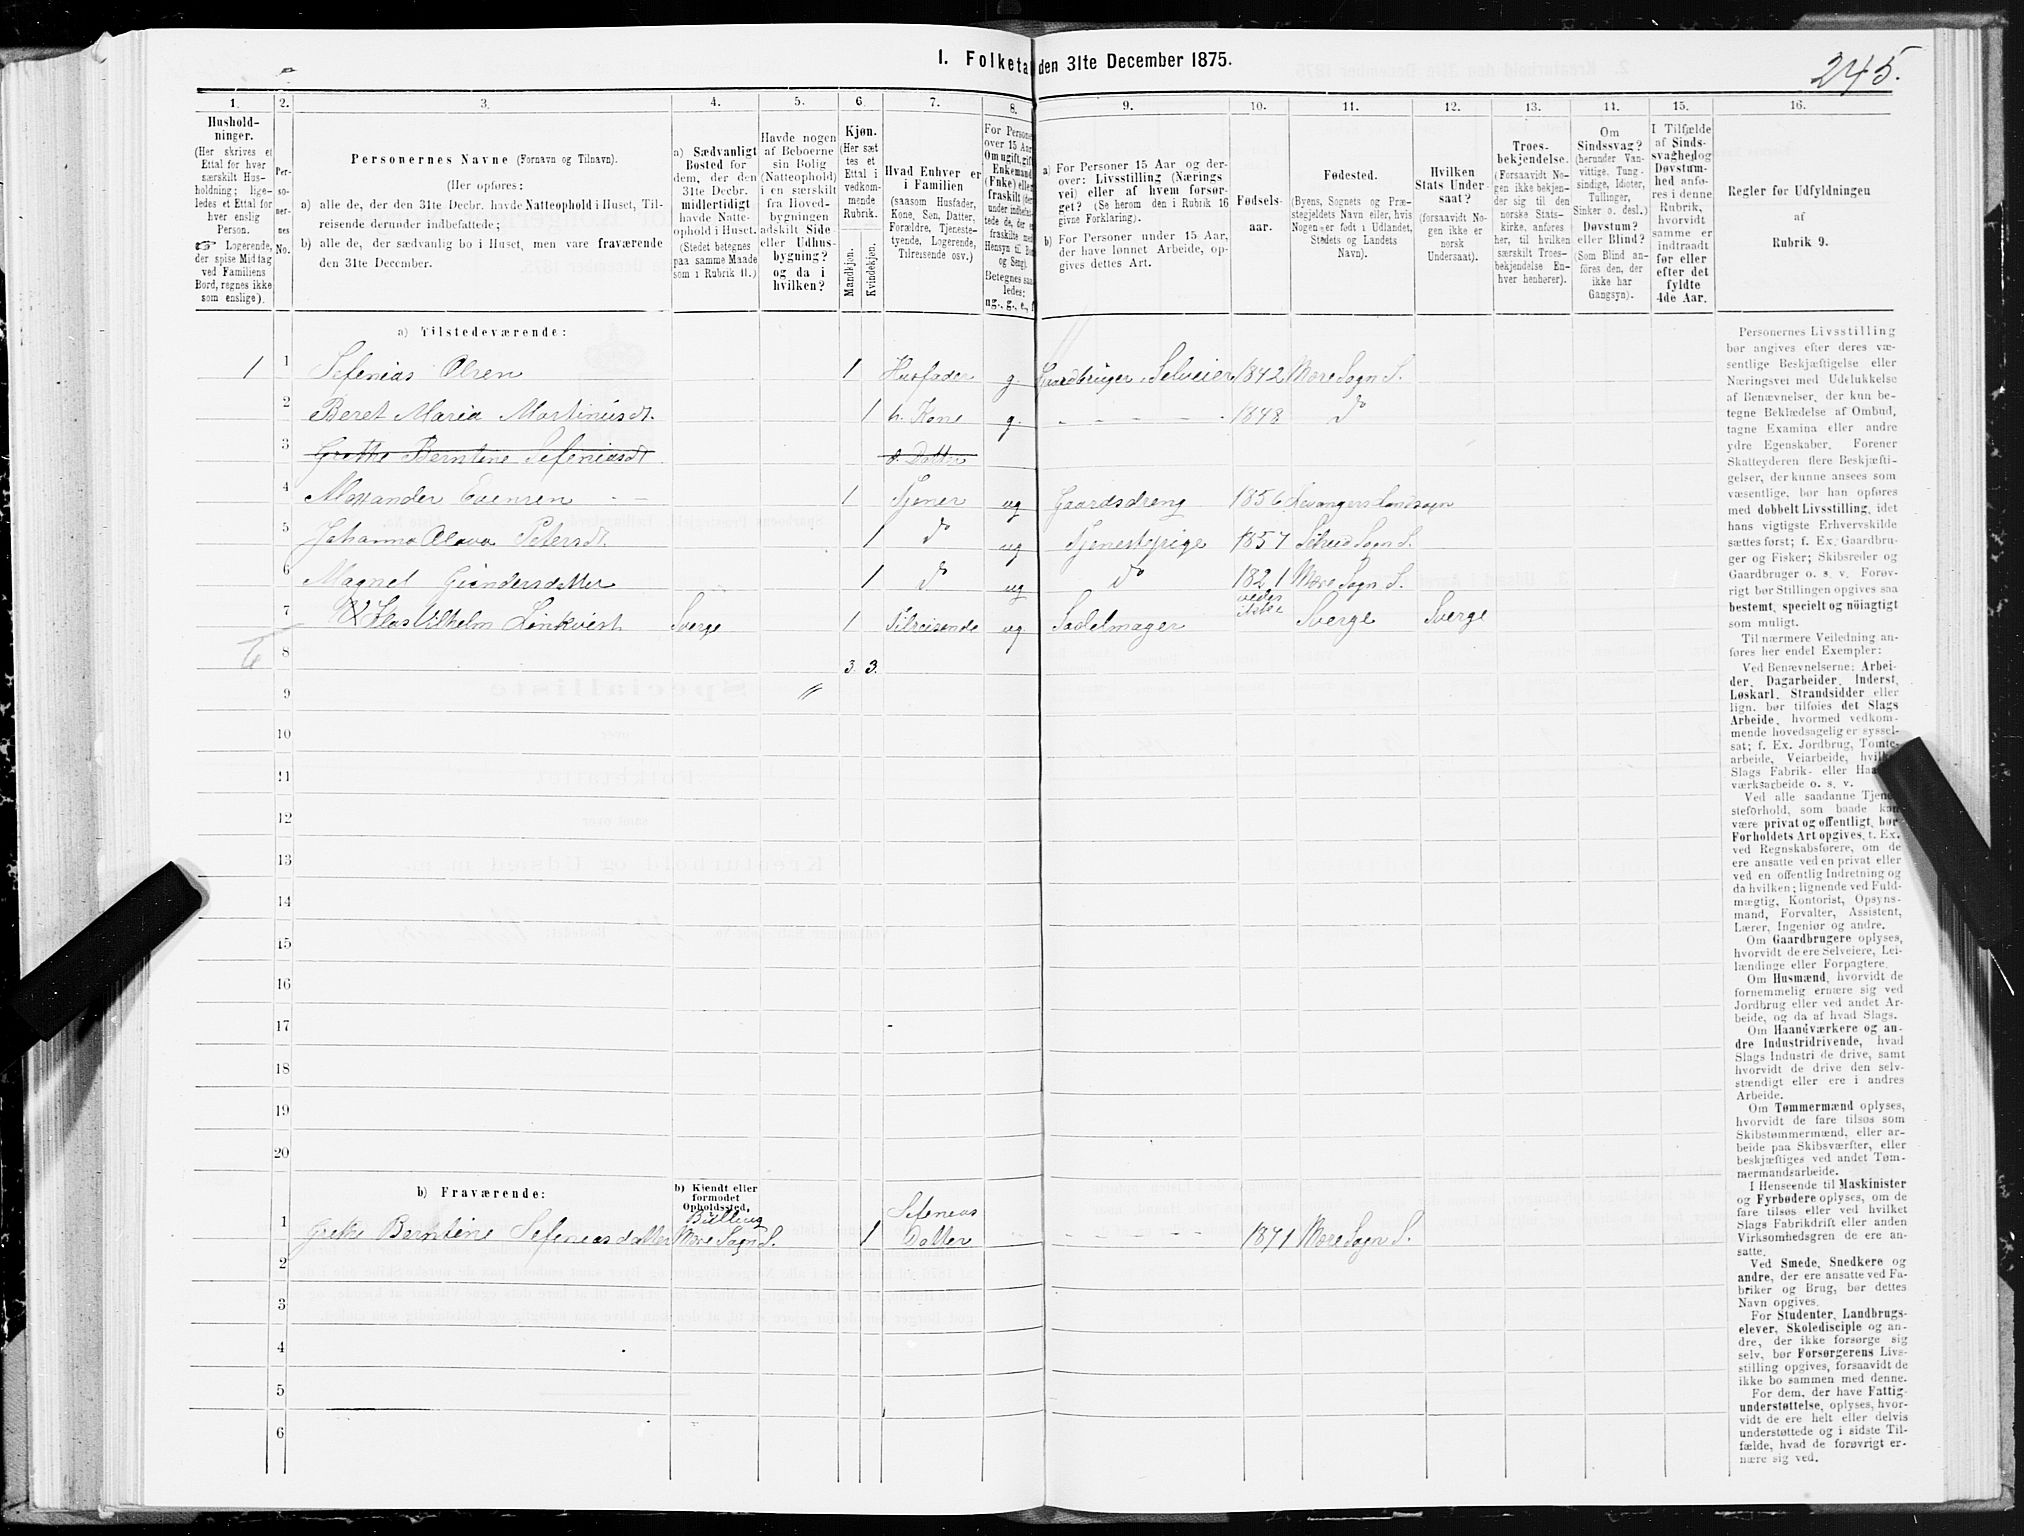 245.
I. Folketa den 31te December 1875.
1. 2. 3. 4. 5. 6. 7. 8. 9. 10. 11. 12. 13. 14. 15. 16.
Hushold-
ninger.
(Her skrives et
Ettal for hver
særskilt Hus-
holdning; lige-
ledes et Ettal for
hver enslig
Person.
☞ Logerende,
der spise Middag
ved Familiens
Bord, regnes ikke
som enslige).
Per-
so-
ner-
nes
No.
Personernes Navne (Fornavn og Tilnavn).
(Her opføres:
a) alle de, der den 31te Decbr. havde Natteophold i Huset, Til-
reisende derunder indbefattede;
b) alle de, der sædvanlig bo i Huset, men vare fraværende
den 31te December.
a) Sædvanligt
Bosted for
dem, der den
31te Decbr.
midlertidigt
havde Natte-
ophold i Huset.
(Stedet betegnes
paa samme Maade
som i Rubrik 11.)
Havde nogen
af Beboerne
sin Bolig
(Natteophold)
i en særskilt
fra Hoved-
bygningen
adskilt Side-
eller Udhus-
bygning?
og da i
hvilken?
Kjøn.
(Her sæt-
tes et
Ettal i
vedkom-
mende
Rubrik.
Mandkjøn.
Kvindekjøn.
Hvad Enhver er
i Familien
(saasom Husfader,
Kone, Søn, Datter,
Forældre, Tjeneste-
tyende, Logerende,
Tilreisende osv.)
For Persone
over 15 Aar
Om ugift, gift
Enkemand
(Enke) elle
fraskilt (der
under indbefat
tede de, der er
fraskilte med
Hensyn til Bo
og Seng).
Betegnes saa
ledes:
ug., g., e., f
a) For Personer 15 Aar og der-
over: Livsstilling (Nærings
vei) eller af hvem forsør-
get? (Se herom den i Rubrik 16
givne Forklaring).
b) For Personer under 15 Aar,
der have lønnet Arbeide, op-
gives dettes Art.
Fødsels-
aar.
Fødested.
(Byens, Sognets og Præ-
stegjeldets Navn eller, hvis
Nogen er født i Udlandet,
Stedets og Landets
Navn).
Hvilken
Stats Under-
saat?
(forsaavidt No-
gen ikke er
norsk
Undersaat).
Troes-
bekjendelse.
(Forsaavidt No-
gen ikke bekjen-
der sig til den
norske Stats-
kirke, anføres
her, til hvilken
særskilt Troes-
bekjendelse En-
hver henhører).
Om
Sindssvag?
(herunder Van-
vittige, Tung-
sindige, Idioter,
Tullinger,
Sinker o. desl.)
Døvstum?
eller Blind?
(Som Blind an-
føres den, der
ikke har
Gangsyn).
I Tilfælde
af Sinds-
svaghed og
Døvstum-
hed anfø-
res i denne
Rubrik,
hvorvidt
samme er
indtraadt
før eller
efter det
fyldte
4de Aar.
Regler for Udfyldningen
af
Rubrik 9.
a) Tilstedeværende:
1 1 Sefenias Olsen 1 Husfader g. Gaardbruger, Selveier 1842 Møre Sogn S.
2 Beret Maria Martinusdt. 1 h. Kone g. - - - - 1848 do
3 Grethe Berntine Sefeniasdt d. Datter
4 Alexander Evensen - - 1 Tjener ug Gaardsdreng 1856 Levangers Landsogn
5 Johanna Olava Petersdt. 1 do ug Tjenestepige 1857 Sogn S.
6 Magnel 1 do ug do 1821 Møre Sogn S.
7 Vilhelm Linkvist Sverge 1 Tilreisende ug. Sadelmager vedes ikke Sverge Sverge
6
8 3. 3.
9 "
10
11
12
13
14
15
16
17
18
19
20
b) Fraværende:
b) Kjendt eller
formodet
Opholdssted,
1 Grethe Berntine Sefeniasdatter Møre Sogn S. 1 Sefenias Datter - - - - 1871 Møre Sogn S.
2
3
4
5
6
Personernes Livsstilling
bør angives efter deres væ-
sentlige Beskjæftigelse eller
Næringsvei med Udelukkelse
af Benævnelser, der kun be-
tegne Beklædelse af Ombud,
tagne Examina eller andre
ydre Egenskaber. Forener
Skatteyderen flere Beskjæfti-
gelser, der kunne ansees som
væsentlige, bør han opføres
med dobbelt Livsstilling, idet
hans vigtigste Erhvervskilde
sættes først; f. Ex. Gaardbru-
ger og Fisker; Skibsreder og
Gaardbruger o. s. v. Forøv-
rigt bør Stillingen opgives saa
bestemt, specielt og nøiagtigt
som muligt.
Til nærmere Veiledning an-
føres her endel Exempler:
Ved Benævnelserne: Arbei-
der, Dagarbeider, Inderst,
Løskarl, Strandsidder eller
lign. bør tilføies det Slags
Arbeide, hvormed vedkom-
mende hovedsagelig er syssel-
sat; f. Ex. Jordbrug, Tomte-
arbeide, Veiarbeide, hvilk
Slags Fabrik- eller Haa
værksarbeide o. s. v.
Ved alle saadanne Tjene
steforhold, som baade kan
være privat og offentligt, bør
Forholdets Art opgives, t. Ex.
ved Regnskabsførere, om de
ere ansatte ved en privat eller
ved en offentlig Indretning og
da hvilken; lignende ved Fuld-
mægtig, Kontorist, Opsyns-
mand, Forvalter, Assistent,
Lærer, Ingeniør og andre.
Om Gaardbrugere oplyses,
hvorvidt de ere Selveiere, Lei-
lændinge eller Forpagtere.
Om Husmænd, hvorvidt de
fornemmelig ernære sig ved
Jordbrug eller ved andet Ar-
beide, og da af hvad Slags.
Om Haandværkere og an-
dre Industridrivende, hvad
Slags Industri de drive, samt
hvorvidt de drive den selv-
stændigt eller ere i andres
Arbeide.
Om Tømmermænd oplyses,
hvorvidt de fare tilsøs som
Skibstømmermænd, eller ar-
beide paa Skibsværfter, eller
beskjæftiges ved andet Tøm-
mermandsarbeide.
I Henseende til Maskinister
og Fyrbødere oplyses, om de
fare tilsøs eller ved hvilket
Slags Fabrikdrift eller anden
Virksomhedsgren de ere an-
satte.
Ved Smede, Snedkere og
andre, der ere ansatte ved Fa-
briker og Brug, bør dettes
Navn opgives.
For Studenter, Landbrugs-
elever, Skoledisciple og an-
dre, der ikke forsørge sig
selv, bør Forsørgerens Livs-
stilling opgives, forsaavidt de
ikke bo sammen med denne.
For dem, der have Fattig-
understøttelse, oplyses, hvor-
vidt de ere helt eller delvis
understøttede og i sidste Til-
fælde, hvad de forøvrigt er-
nære sig ved.